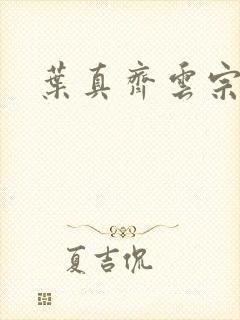 葉真齊雲宗
夏吉侃